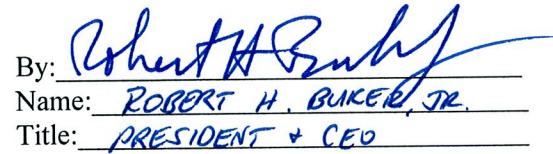 By: Robert H Buker Jr
Name: ROBERT H. BUKER, JR.
Title: PRESIDENT + CEO